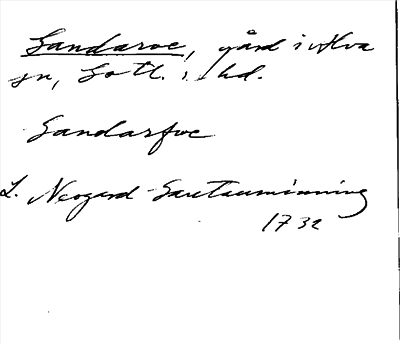 Sandarve, gård i Alva
sn, Gotl. s. hd.
Sandarfve
L. Neogard Gautauminning
1732